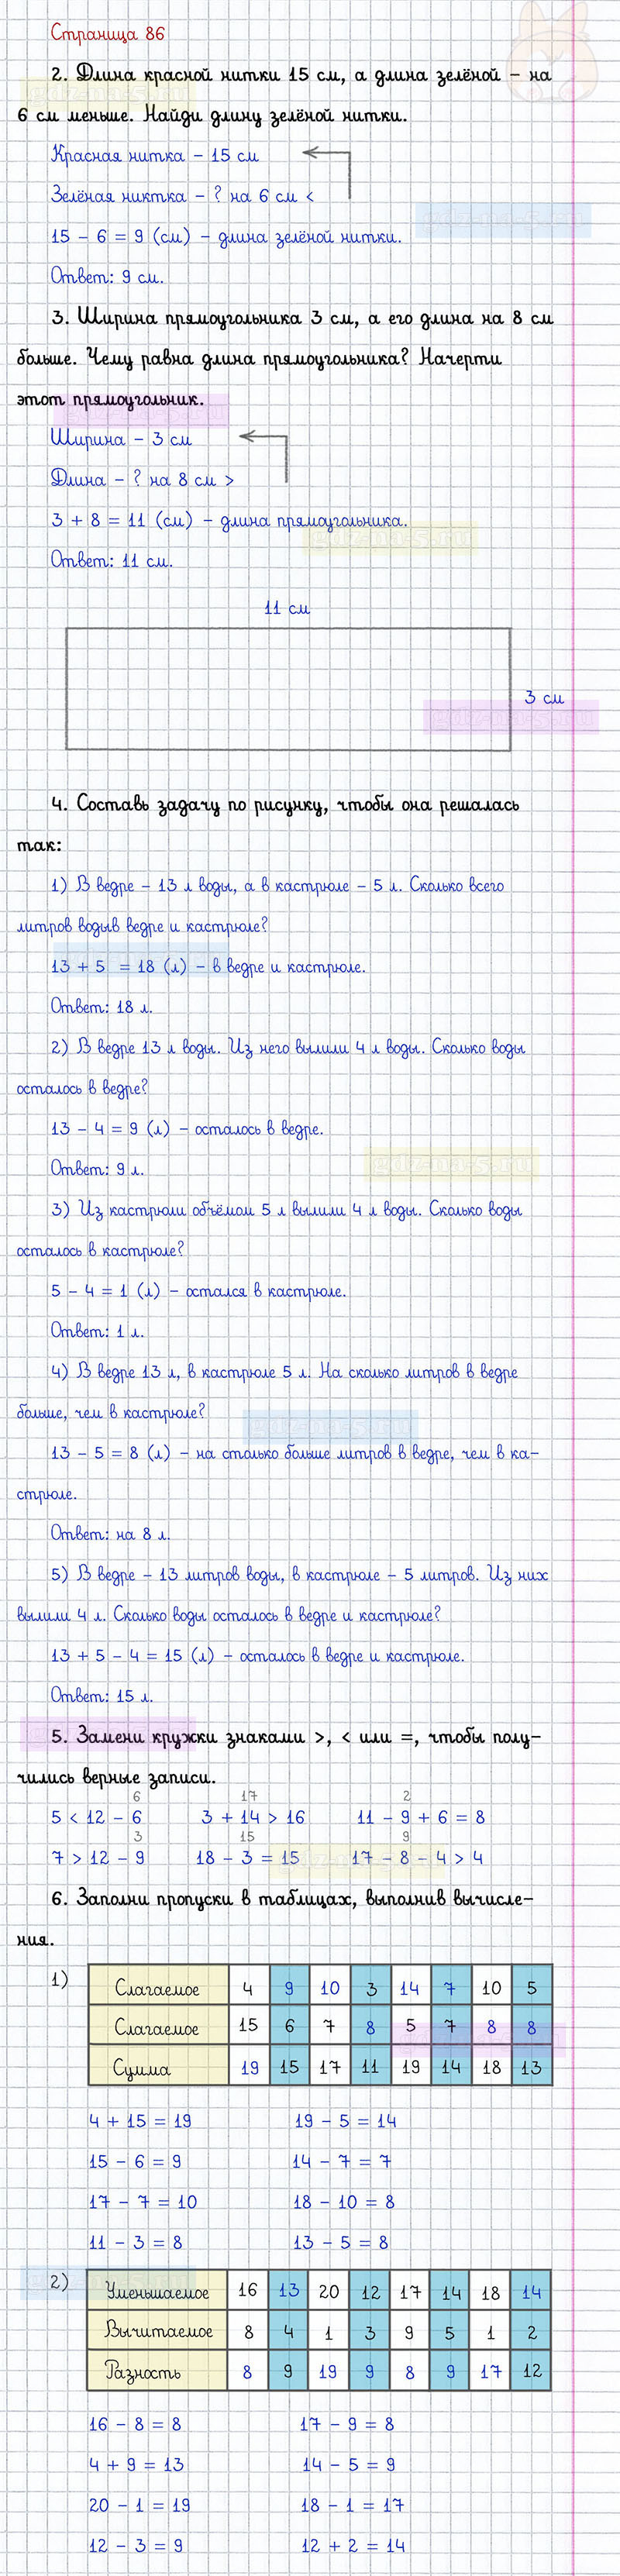 Страница 86
2. Длина красной нитки 15 см, а длина зелёной – на
6 см меньше. Найди длину зелёной нитки.
Красная нитка – 15 см
Зелёная никтка – ? на 6 см <
15 – 6 = 9 (см) – длина зелёной нитки.
Ответ: 9 см.
3. Ширина прямоугольника 3 см, а его длина на 8 см
больше. Чему равна длина прямоугольника? Начерти
этот прямоугольник.
Ширина – 3 см
Длина – ? на 8 см >
3 + 8 = 11 (см) – длина прямоугольника.
Ответ: 11 см.
11 см
3 см
4. Составь задачу по рисунку, чтобы она решалась
так:
1) В ведре – 13 л воды, а в кастрюле – 5 л. Сколько всего
литров водыв ведре и кастрюле?
13 + 5 = 18 (л) – в ведре и кастрюле.
Ответ: 18 л.
2) В ведре 13 л воды. Из него вылили 4 л воды. Сколько воды
осталось в ведре?
13 – 4 = 9 (л) – осталось в ведре.
Ответ: 9 л.
3) Из кастрюли объёмом 5 л вылили 4 л воды. Сколько воды
осталось в кастрюле?
5 – 4 = 1 (л) – остался в кастрюле.
Ответ: 1 л.
4) В ведре 13 л, в кастрюле 5 л. На сколько литров в ведре
больше, чем в кастрюле?
13 – 5 = 8 (л) – на столько больше литров в ведре, чем в ка–
стрюле.
Ответ: на 8 л.
5) В ведре – 13 литров воды, в кастрюле – 5 литров. Из них
вылили 4 л. Сколько воды осталось в ведре и кастрюле?
13 + 5 – 4 = 15 (л) – осталось в ведре и кастрюле.
Ответ: 15 л.
5. Замени кружки знаками >, < или =, чтобы полу–
чились верные записи.
6 17 2
5 < 12 – 6 3 + 14 > 16 11 – 9 + 6 = 8
3 15 9
7 > 12 – 9 18 – 3 = 15 17 – 8 – 4 > 4
6. Заполни пропуски в таблицах, выполнив вычисле–
ния.
1) Слагаемое 4 9 10 3 14 7 10 5
Слагаемое 15 6 7 8 5 7 8 8
Сумма 19 15 17 11 19 14 18 13
4 + 15 = 19 19 – 5 = 14
15 – 6 = 9 14 – 7 = 7
17 – 7 = 10 18 – 10 = 8
11 – 3 = 8 13 – 5 = 8
2) Уменьшаемое 16 13 20 12 17 14 18 14
Вычитаемое 8 4 1 3 9 5 1 2
Разность 8 9 19 9 8 9 17 12
16 – 8 = 8 17 – 9 = 8
4 + 9 = 13 14 – 5 = 9
20 – 1 = 19 18 – 1 = 17
12 – 3 = 9 12 + 2 = 14